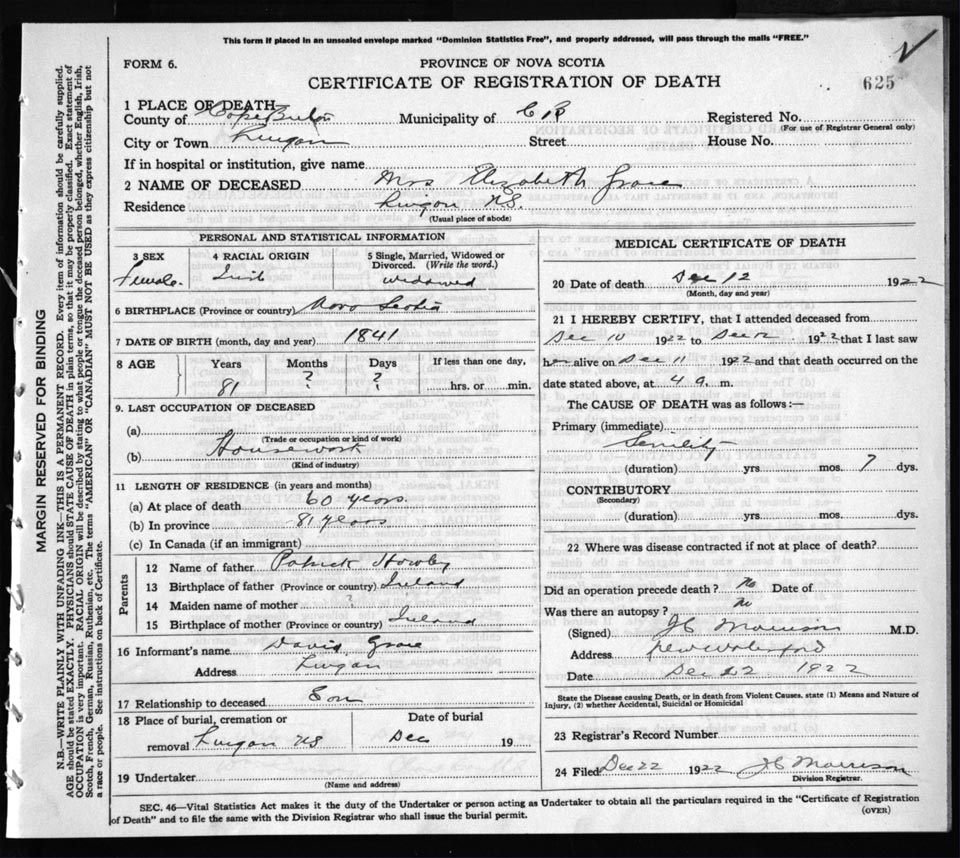 This form if placed in an unsealed envelope marked "Dominion Statistics Free", and properly addressed, will pass through the mails "FREE."
FORM 6.
PROVINCE OF NOVA SCOTIA
625
CERTIFICATE OF REGISTRATION OF DEATH
1 PLACE OF DEATH
County of Cape Breton Municipality of C B Registered No.
(For use of Registrar General only)
City or Town Lingan Street House No.
If in hospital or institution, give name
2 NAME OF DECEASED Mrs Elizabeth Grace
Residence Lingan NS.
(Usual place of abode)
PERSONAL AND STATISTICAL INFORMATION
3 SEX Female.
4 RACIAL ORIGIN Irish
5 Single, Married, Widowed or Divorced. (Write the word.) Widowed
6 BIRTHPLACE (Province or country) Nova Scotia
7 DATE OF BIRTH (month, day and year) 1841
8 AGE Years Months Days If less than one day,
81 ? ? hrs. or min.
9. LAST OCCUPATION OF DECEASED
(a)
(Trade or occupation or kind of work)
(b) Housework
(Kind of industry)
11 LENGTH OF RESIDENCE (in years and months)
(a) At place of death 60 years
(b) In province 81 years
(c) In Canada (if an immigrant)
Parents
12 Name of father Patrick
13 Birthplace of father (Province or country) Ireland
14 Maiden name of mother ?
15 Birthplace of mother (Province or country) Ireland
16 Informant's name David Grace
Address Lingan
17 Relationship to deceased Son
18 Place of burial, cremation or removal Lingan NS
Date of burial
Dec 19
19 Undertaker
(Name and address)
MEDICAL CERTIFICATE OF DEATH
20 Date of death Dec 12 1922
(Month, day and year)
21 I HEREBY CERTIFY, that I attended deceased from
Dec 10 1922 to Dec 12 1922 that I last saw
her alive on Dec 11 1922 and that death occurred on the
date stated above, at 4 a. m.
The CAUSE OF DEATH was as follows:—
Primary (immediate)
Senility
(duration) yrs. mos. 7 dys.
CONTRIBUTORY
(Secondary)
(duration) yrs. mos. dys.
22 Where was disease contracted if not at place of death?
Did an operation precede death? No Date of
Was there an autopsy? No
(Signed) J C Morrison M.D.
Address New Waterford
Date Dec 22 1922
State the Disease causing Death, or in death from Violent Causes, state (1) Means and Nature of
Injury, (2) whether Accidental, Suicidal or Homicidal
23 Registrar's Record Number
24 Filed Dec 22 1922 J C Morrison
Division Registrar.
SEC. 46—Vital Statistics Act makes it the duty of the Undertaker or person acting as Undertaker to obtain all the particulars required in the "Certificate of Registration
of Death" and to file the same with the Division Registrar who shall issue the burial permit.
(OVER)
MARGIN RESERVED FOR BINDING
N.B.—WRITE PLAINLY WITH UNFADING INK—THIS IS A PERMANENT RECORD. Every item of information should be carefully supplied.
AGE should be stated EXACTLY. PHYSICIANS should STATE CAUSE OF DEATH in plain terms, so that it may be properly classified. Exact statement of
OCCUPATION is very important. RACIAL ORIGIN will be described by stating to what people or tongue the deceased person belonged, whether English, Irish,
Scotch, French, German, Russian, Ruthenian, etc. The terms "AMERICAN" OR "CANADIAN" MUST NOT BE USED as they express citizenship but not
a race or people. See instructions on back of Certificate.